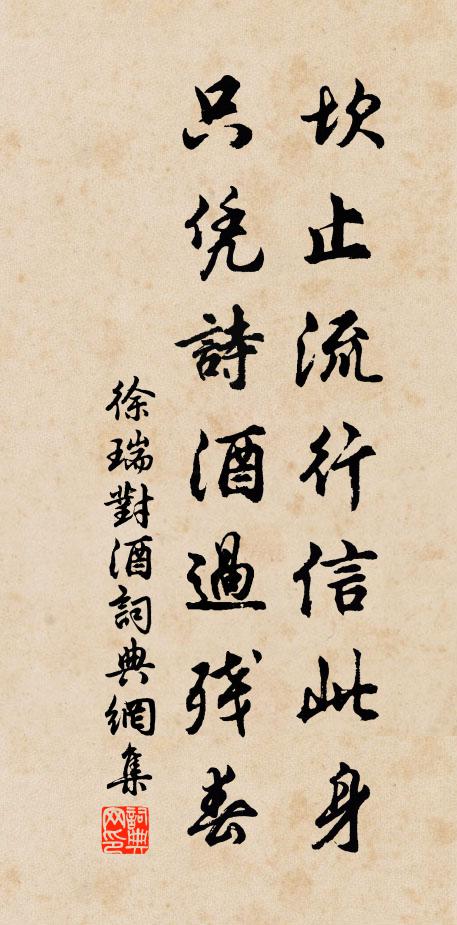 坎止流行信此身
只凭詩酒過残春
徐瑞對酒詞典網集
詞典网印